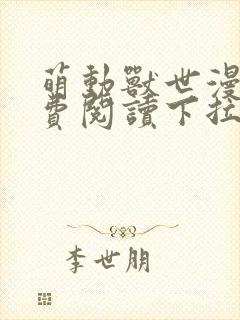 萌動獸世漫
費閱讀下拉
李世朋